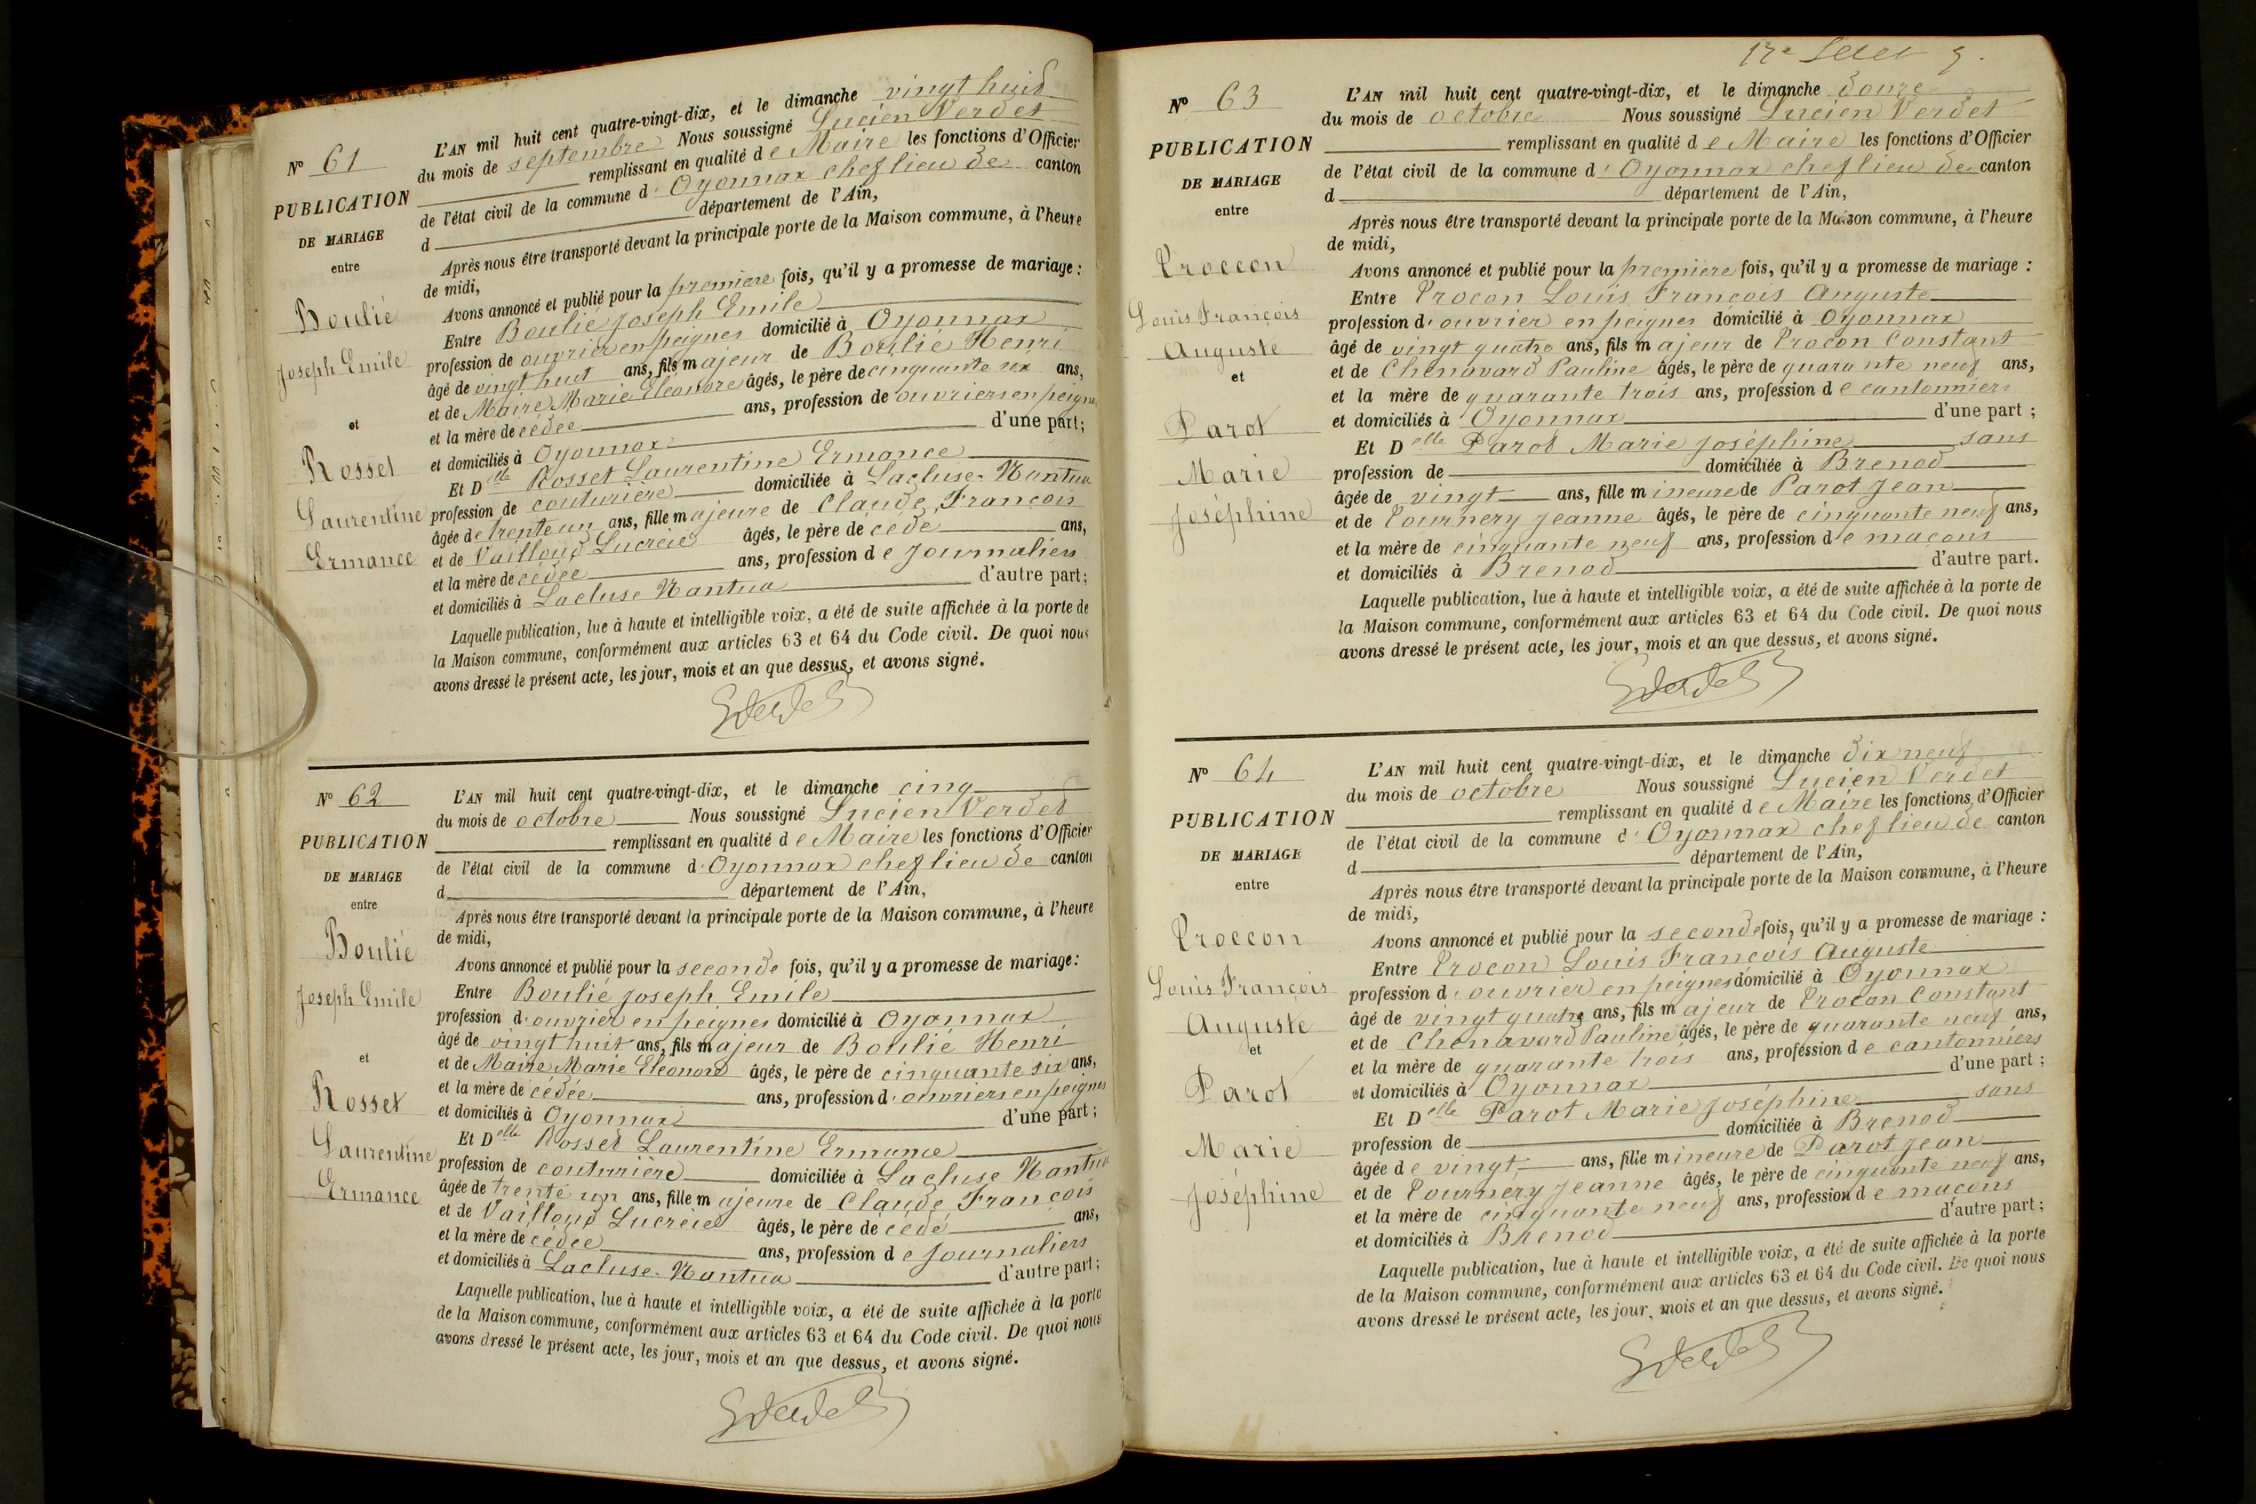 Nº 61
PUBLICATION
DE MARIAGE
entre
Boulié
Joseph Emile
et
Rosset
Laurentine
Ermance
L'AN mil huit cent quatre-vingt-dix, et le dimanche vingt huit
du mois de septembre Nous soussigné Lucien Verdet
remplissant en qualité de Maire les fonctions d'Officier
de l'état civil de la commune d'Oyonnax chef lieu de canton
d département de l'Ain,
Après nous être transporté devant la principale porte de la Maison commune, à l'heure
de midi,
Avons annoncé et publié pour la première fois, qu'il y a promesse de mariage :
Entre Boulié Joseph Emile
profession de ouvrier en peignes domicilié à Oyonnax
âgé de vingt huit ans, fils majeur de Boulié Henri
et de Maire Marie Eleonore âgés, le père de cinquante six ans,
et la mère de cédée ans, profession de ouvriers en peignes
et domiciliés à Oyonnax d'une part;
Et Delle Rosset Laurentine Ermance
profession de couturière domiciliée à Lacluse-Nantua
âgée de trente un ans, fille majeure de Claude, François
et de Vailloud Lucrèce âgés, le père de cédé ans,
et la mère de cédée ans, profession de journaliers
et domiciliés à Lacluse Nantua d'autre part;
Laquelle publication, lue à haute et intelligible voix, a été de suite affichée à la porte de
la Maison commune, conformément aux articles 63 et 64 du Code civil. De quoi nous
avons dressé le présent acte, les jour, mois et an que dessus, et avons signé.
Nº 62
PUBLICATION
DE MARIAGE
entre
Boulié
Joseph Emile
et
Rosset
Laurentine
Ermance
L'AN mil huit cent quatre-vingt-dix, et le dimanche cinq
du mois de octobre Nous soussigné Lucien Verdet
remplissant en qualité de Maire les fonctions d'Officier
de l'état civil de la commune d'Oyonnax chef lieu de canton
d département de l'Ain,
Après nous être transporté devant la principale porte de la Maison commune, à l'heure
de midi,
Avons annoncé et publié pour la seconde fois, qu'il y a promesse de mariage :
Entre Boulié Joseph Emile
profession d'ouvrier en peignes domicilié à Oyonnax
âgé de vingt huit ans, fils majeur de Boulié Henri
et de Maire Marie Eleonore âgés, le père de cinquante six ans,
et la mère de cédée ans, profession d'ouvriers en peignes
et domiciliés à Oyonnax d'une part;
Et Delle Rosset Laurentine Ermance
profession de couturière domiciliée à Lacluse Nantua
âgée de trente un ans, fille majeure de Claude, François
et de Vailloud Lucrèce âgés, le père de cédé ans,
et la mère de cédée ans, profession de journaliers
et domiciliés à Lacluse-Nantua d'autre part;
Laquelle publication, lue à haute et intelligible voix, a été de suite affichée à la porte
de la Maison commune, conformément aux articles 63 et 64 du Code civil. De quoi nous
avons dressé le présent acte, les jour, mois et an que dessus, et avons signé.
Nº 63
PUBLICATION
DE MARIAGE
entre
Proccon
Louis François
Auguste
et
Parot
Marie
Joséphine
L'AN mil huit cent quatre-vingt-dix, et le dimanche douze
du mois de octobre Nous soussigné Lucien Verdet
remplissant en qualité de Maire les fonctions d'Officier
de l'état civil de la commune d'Oyonnax chef lieu de canton
d département de l'Ain,
Après nous être transporté devant la principale porte de la Maison commune, à l'heure
de midi,
Avons annoncé et publié pour la première fois, qu'il y a promesse de mariage :
Entre Procon Louis François Auguste
profession d'ouvrier en peignes domicilié à Oyonnax
âgé de vingt quatre ans, fils majeur de Procon Constant
et de Chenavard Pauline âgés, le père de quarante neuf ans,
et la mère de quarante trois ans, profession de cantonniers
et domiciliés à Oyonnax d'une part ;
Et Delle Parot Marie Joséphine sans
profession de domiciliée à Brenod
âgée de vingt ans, fille mineure de Parot Jean
et de Tournery Jeanne âgés, le père de cinquante neuf ans,
et la mère de cinquante neuf ans, profession de maçons
et domiciliés à Brenod d'autre part.
Laquelle publication, lue à haute et intelligible voix, a été de suite affichée à la porte de
la Maison commune, conformément aux articles 63 et 64 du Code civil. De quoi nous
avons dressé le présent acte, les jour, mois et an que dessus, et avons signé.
Nº 64
PUBLICATION
DE MARIAGE
entre
Proccon
Louis François
Auguste
et
Parot
Marie
Joséphine
L'AN mil huit cent quatre-vingt-dix, et le dimanche dix neuf
du mois de octobre Nous soussigné Lucien Verdet
remplissant en qualité de Maire les fonctions d'Officier
de l'état civil de la commune d'Oyonnax chef lieu de canton
d département de l'Ain,
Après nous être transporté devant la principale porte de la Maison commune, à l'heure
de midi,
Avons annoncé et publié pour la seconde fois, qu'il y a promesse de mariage :
Entre Procon Louis François Auguste
profession d'ouvrier en peignes domicilié à Oyonnax
âgé de vingt quatre ans, fils majeur de Procon Constant
et de Chenavard Pauline âgés, le père de quarante neuf ans,
et la mère de quarante trois ans, profession de cantonniers
et domiciliés à Oyonnax d'une part ;
Et Delle Parot Marie Joséphine sans
profession de domiciliée à Brenod
âgée de vingt ans, fille mineure de Parot Jean
et de Tournery Jeanne âgés, le père de cinquante neuf ans,
et la mère de cinquante neuf ans, profession de maçons
et domiciliés à Brenod d'autre part;
Laquelle publication, lue à haute et intelligible voix, a été de suite affichée à la porte
de la Maison commune, conformément aux articles 63 et 64 du Code civil. De quoi nous
avons dressé le présent acte, les jour, mois et an que dessus, et avons signé.